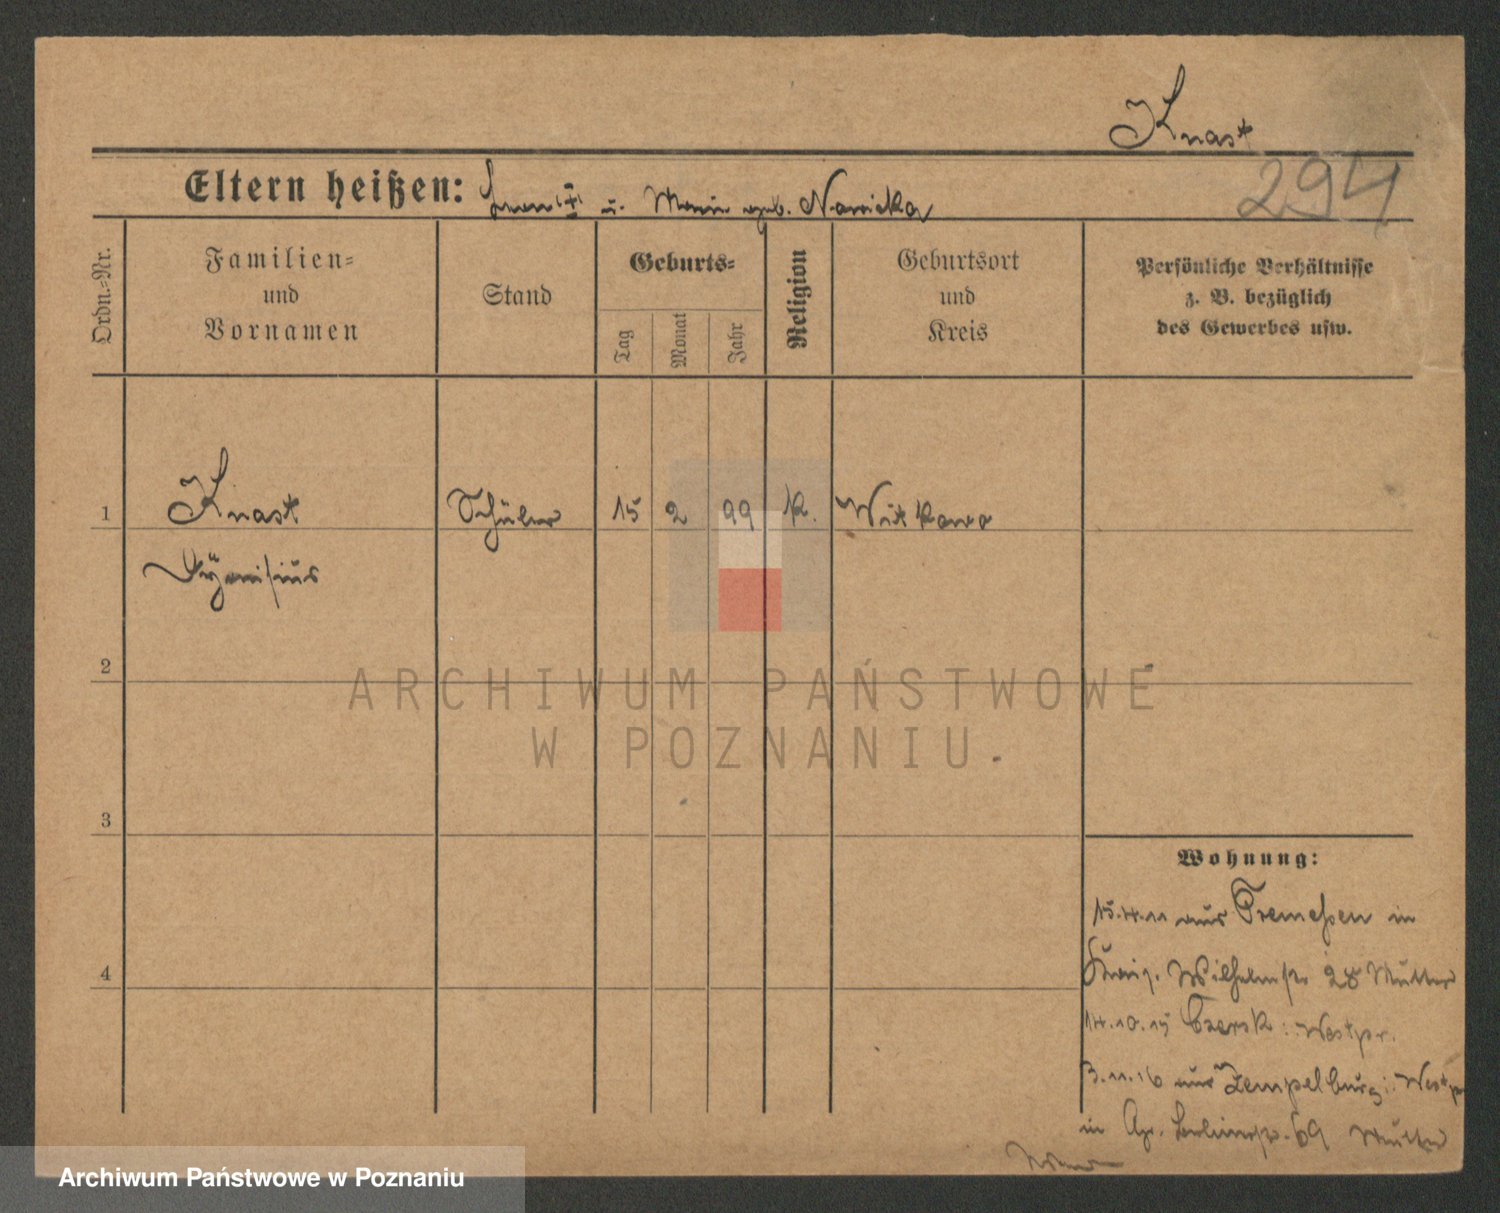 Knast
294
Eltern heißen: u. Maria geb. Nawicka
Ordn.=Nr.
Familien=
und
Vornamen
Stand
Geburts=
Tag
Monat
Jahr
Religion
Geburtsort
und
Kreis
Persönliche Verhältnisse
z. B. bezüglich
des Gewerbes usw.
1 Knast Schüler 15 2 99 k. Witkowo
Dyonisius
2
3
4
Wohnung:
15.4.11 aus Tremessen in
Wilhelmstr 28 Mutter
14.10.15 Czersk i. Westpr.
3.11.16 aus Zempelburg i. Westpr
in 69 Mutter
ARCHIWUM PAŃSTWOWE
W POZNANIU
Archiwum Państwowe w Poznaniu